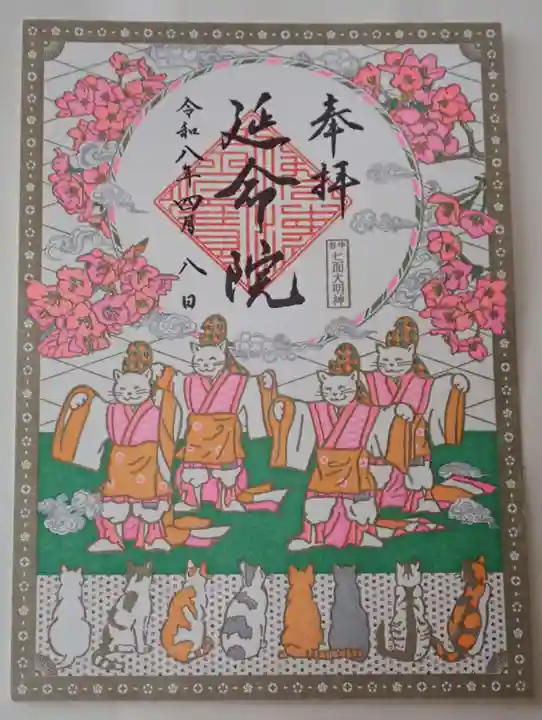 奉拝
七面大明神
延命院
令和八年四月八日